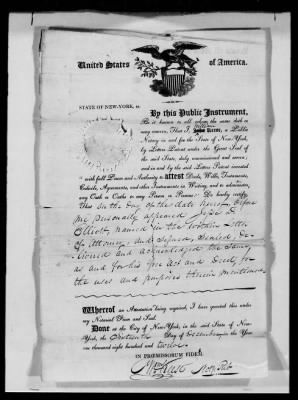 United States of America.
STATE OF NEW-YORK, ss.
By this Public Instrument,
Be it known to all whom the same doth or
may concern, That I, a Public
Notary in and for the State of New-York,
by Letters Patent under the Great Seal of
the said State, duly commissioned and sworn; and
in and by the said Letters Patent invested
with full Power and Authority to attest Deeds, Wills, Testaments,
Codicils, Agreements, and other Instruments in Writing, and to administer
any Oath or Oaths to any Person or Persons: Do hereby certify,
That on the day of the date hereof, before
me personally appeared Jesse D
Elliott, named in the within Letter
of Attorney and signed, sealed,
and acknowledged the same,
as and for his free Act and Deed, for
the uses and purposes therein mentioned.
Whereof an Attestation being required, I have granted this under
my Notarial Firm and Seal.
Done at the City of New-York, in the said State of New
York, the Sixteenth Day of December in the Year
one thousand eight hundred and twelve.
IN PRÆMISSORUM FIDEM.
Not. Pub.